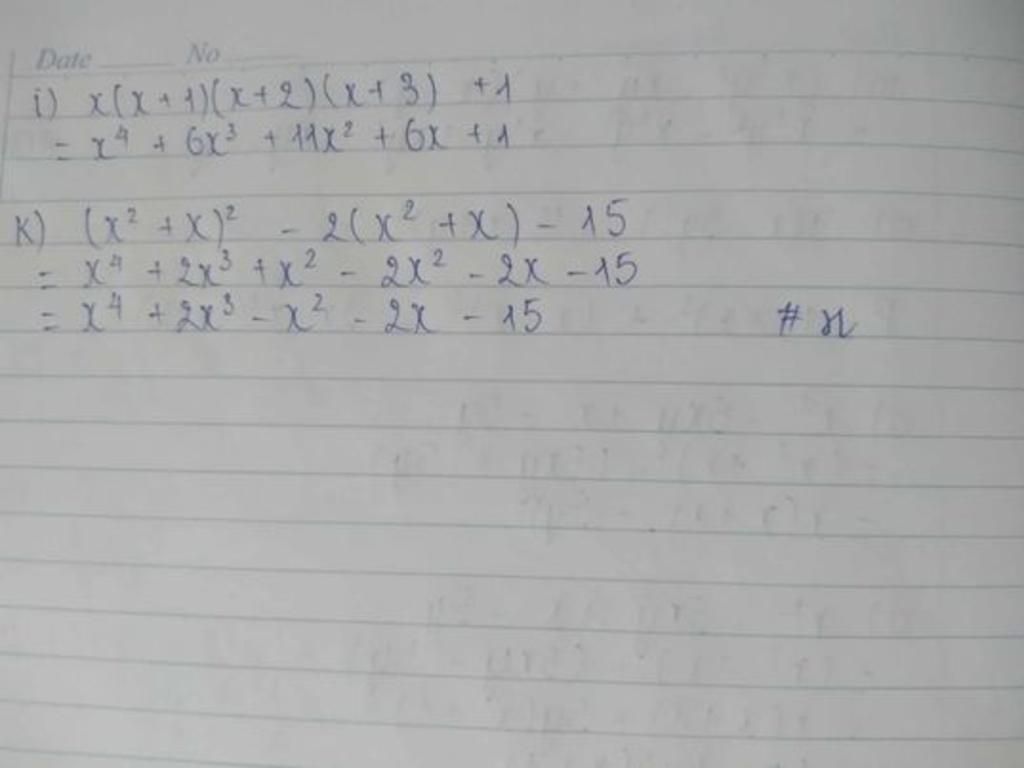 Date No
i) x(x+1)(x+2)(x+3) +1
= x⁴ + 6x³ + 11x² + 6x + 1
K) (x² + x)² - 2(x² + x) - 15
= x⁴ + 2x³ + x² - 2x² - 2x - 15
= x⁴ + 2x³ - x² - 2x - 15 # n